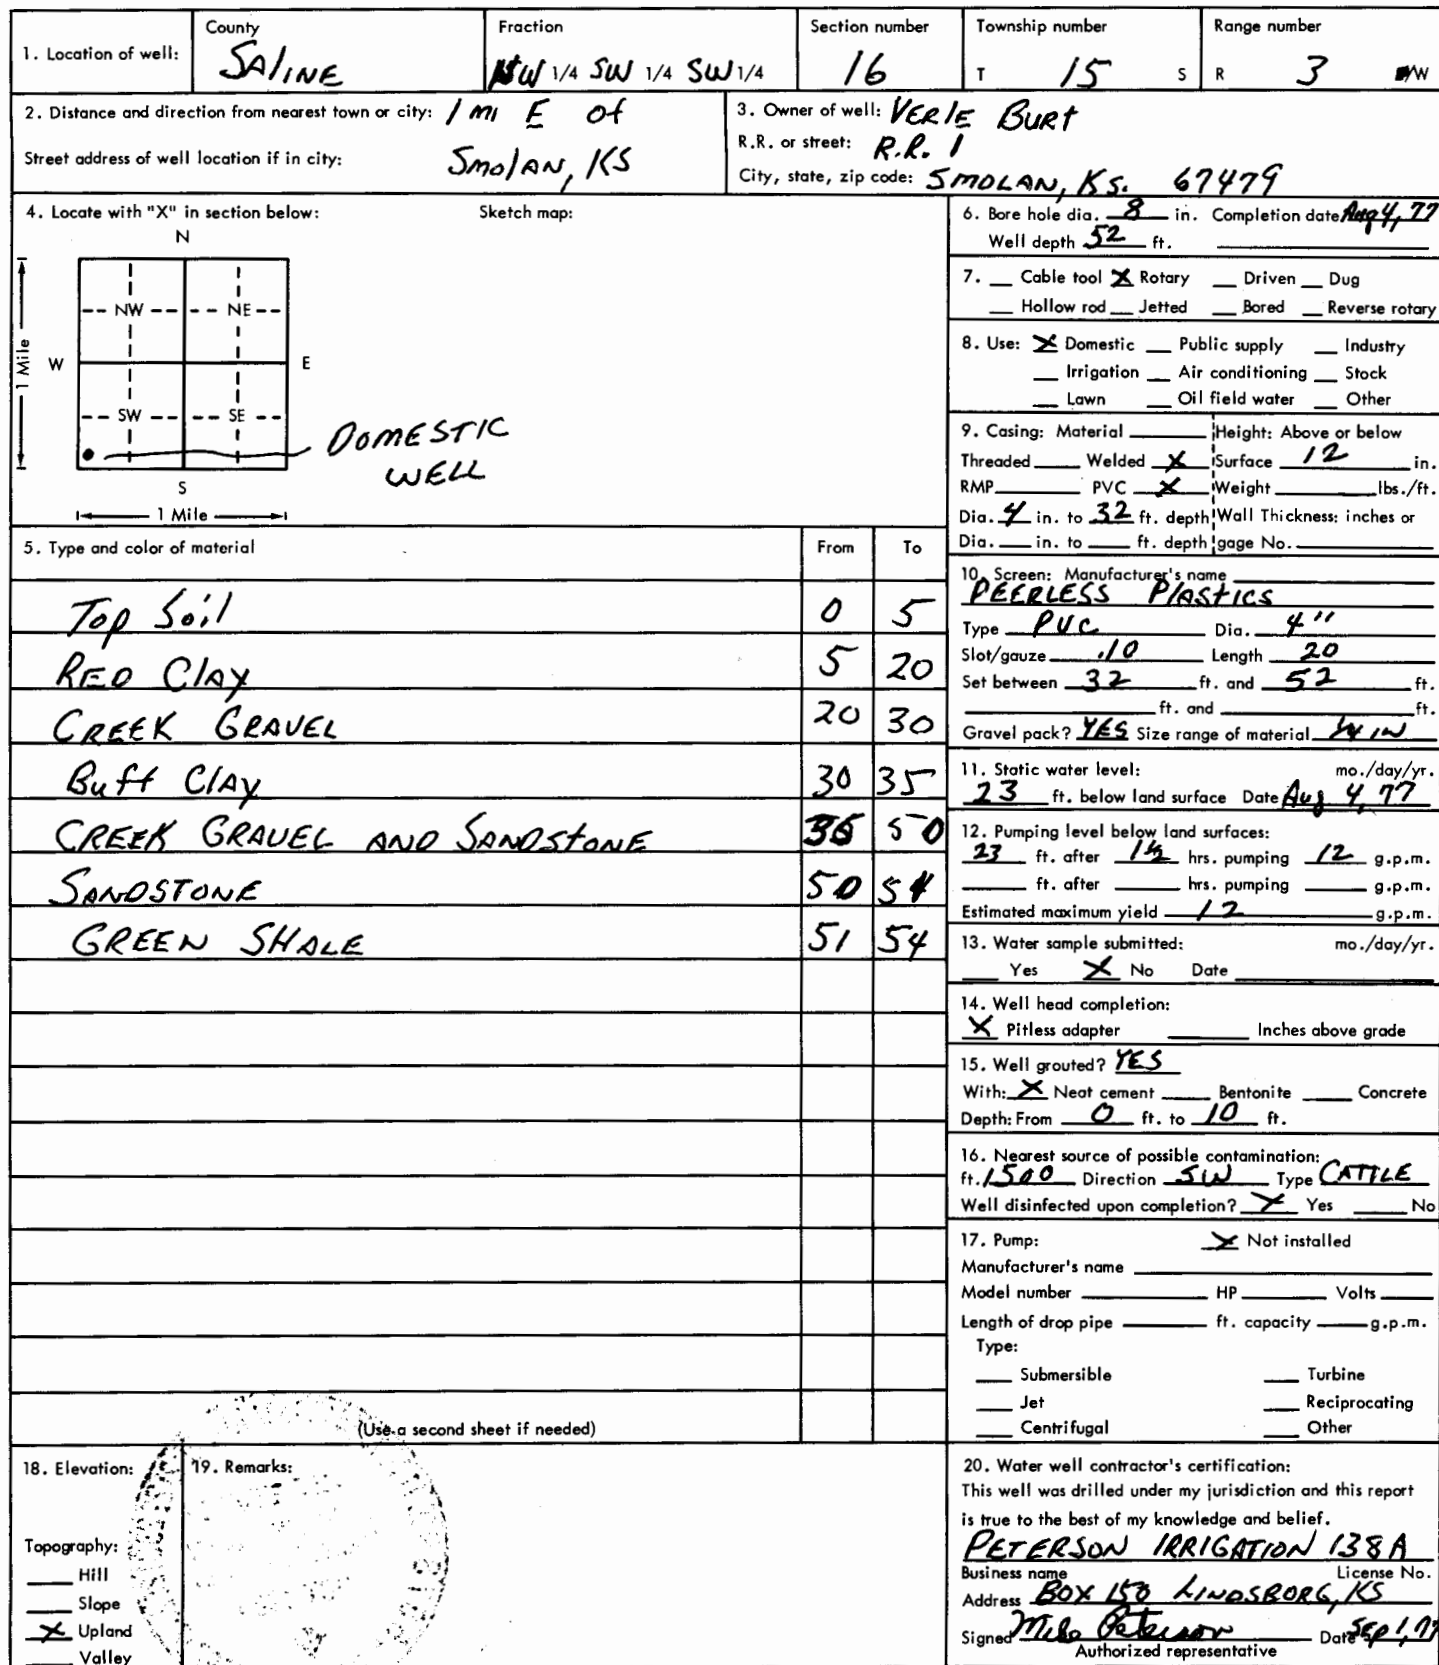 1. Location of well:
County
Saline
Fraction
NW 1/4 SW 1/4 SW 1/4
Section number
16
Township number
T 15 S
Range number
R 3 E/W
2. Distance and direction from nearest town or city: 1 mi E of
Street address of well location if in city: Smolan, KS
3. Owner of well: VERLE BURT
R.R. or street: R.R. 1
City, state, zip code: SMOLAN, KS. 67479
4. Locate with "X" in section below: Sketch map:
N
NW NE
W E
1 Mile
SW SE
DOMESTIC
WELL
S
1 Mile
5. Type and color of material From To
Top Soil 0 5
RED CLAY 5 20
CREEK GRAVEL 20 30
Buff CLAY 30 35
CREEK GRAVEL AND SANDSTONE 35 50
SANDSTONE 50 51
GREEN SHALE 51 54
(Use a second sheet if needed)
6. Bore hole dia. 8 in. Completion date Aug 4, 77
Well depth 52 ft.
7. Cable tool X Rotary Driven Dug
Hollow rod Jetted Bored Reverse rotary
8. Use: X Domestic Public supply Industry
Irrigation Air conditioning Stock
Lawn Oil field water Other
9. Casing: Material Height: Above or below
Threaded Welded X Surface 12 in.
RMP PVC X Weight lbs./ft.
Dia. 4 in. to 32 ft. depth Wall Thickness: inches or
Dia. in. to ft. depth gage No.
10. Screen: Manufacturer's name
PEERLESS PLASTICS
Type PVC Dia. 4"
Slot/gauze .10 Length 20
Set between 32 ft. and 52 ft.
ft. and ft.
Gravel pack? YES Size range of material 1/4 IN
11. Static water level: mo./day/yr.
23 ft. below land surface Date Aug 4, 77
12. Pumping level below land surfaces:
23 ft. after 1½ hrs. pumping 12 g.p.m.
ft. after hrs. pumping g.p.m.
Estimated maximum yield 12 g.p.m.
13. Water sample submitted: mo./day/yr.
Yes X No Date
14. Well head completion:
X Pitless adapter Inches above grade
15. Well grouted? YES
With: X Neat cement Bentonite Concrete
Depth: From 0 ft. to 10 ft.
16. Nearest source of possible contamination:
ft. 1500 Direction SW Type CATTLE
Well disinfected upon completion? X Yes No
17. Pump: X Not installed
Manufacturer's name
Model number HP Volts
Length of drop pipe ft. capacity g.p.m.
Type:
Submersible Turbine
Jet Reciprocating
Centrifugal Other
18. Elevation:
Topography:
Hill
Slope
X Upland
Valley
19. Remarks:
20. Water well contractor's certification:
This well was drilled under my jurisdiction and this report
is true to the best of my knowledge and belief.
PETERSON IRRIGATION 138A
Business name License No.
Address BOX 150 LINDSBORG, KS
Signed Mike Peterson Date Sep 1, 77
Authorized representative